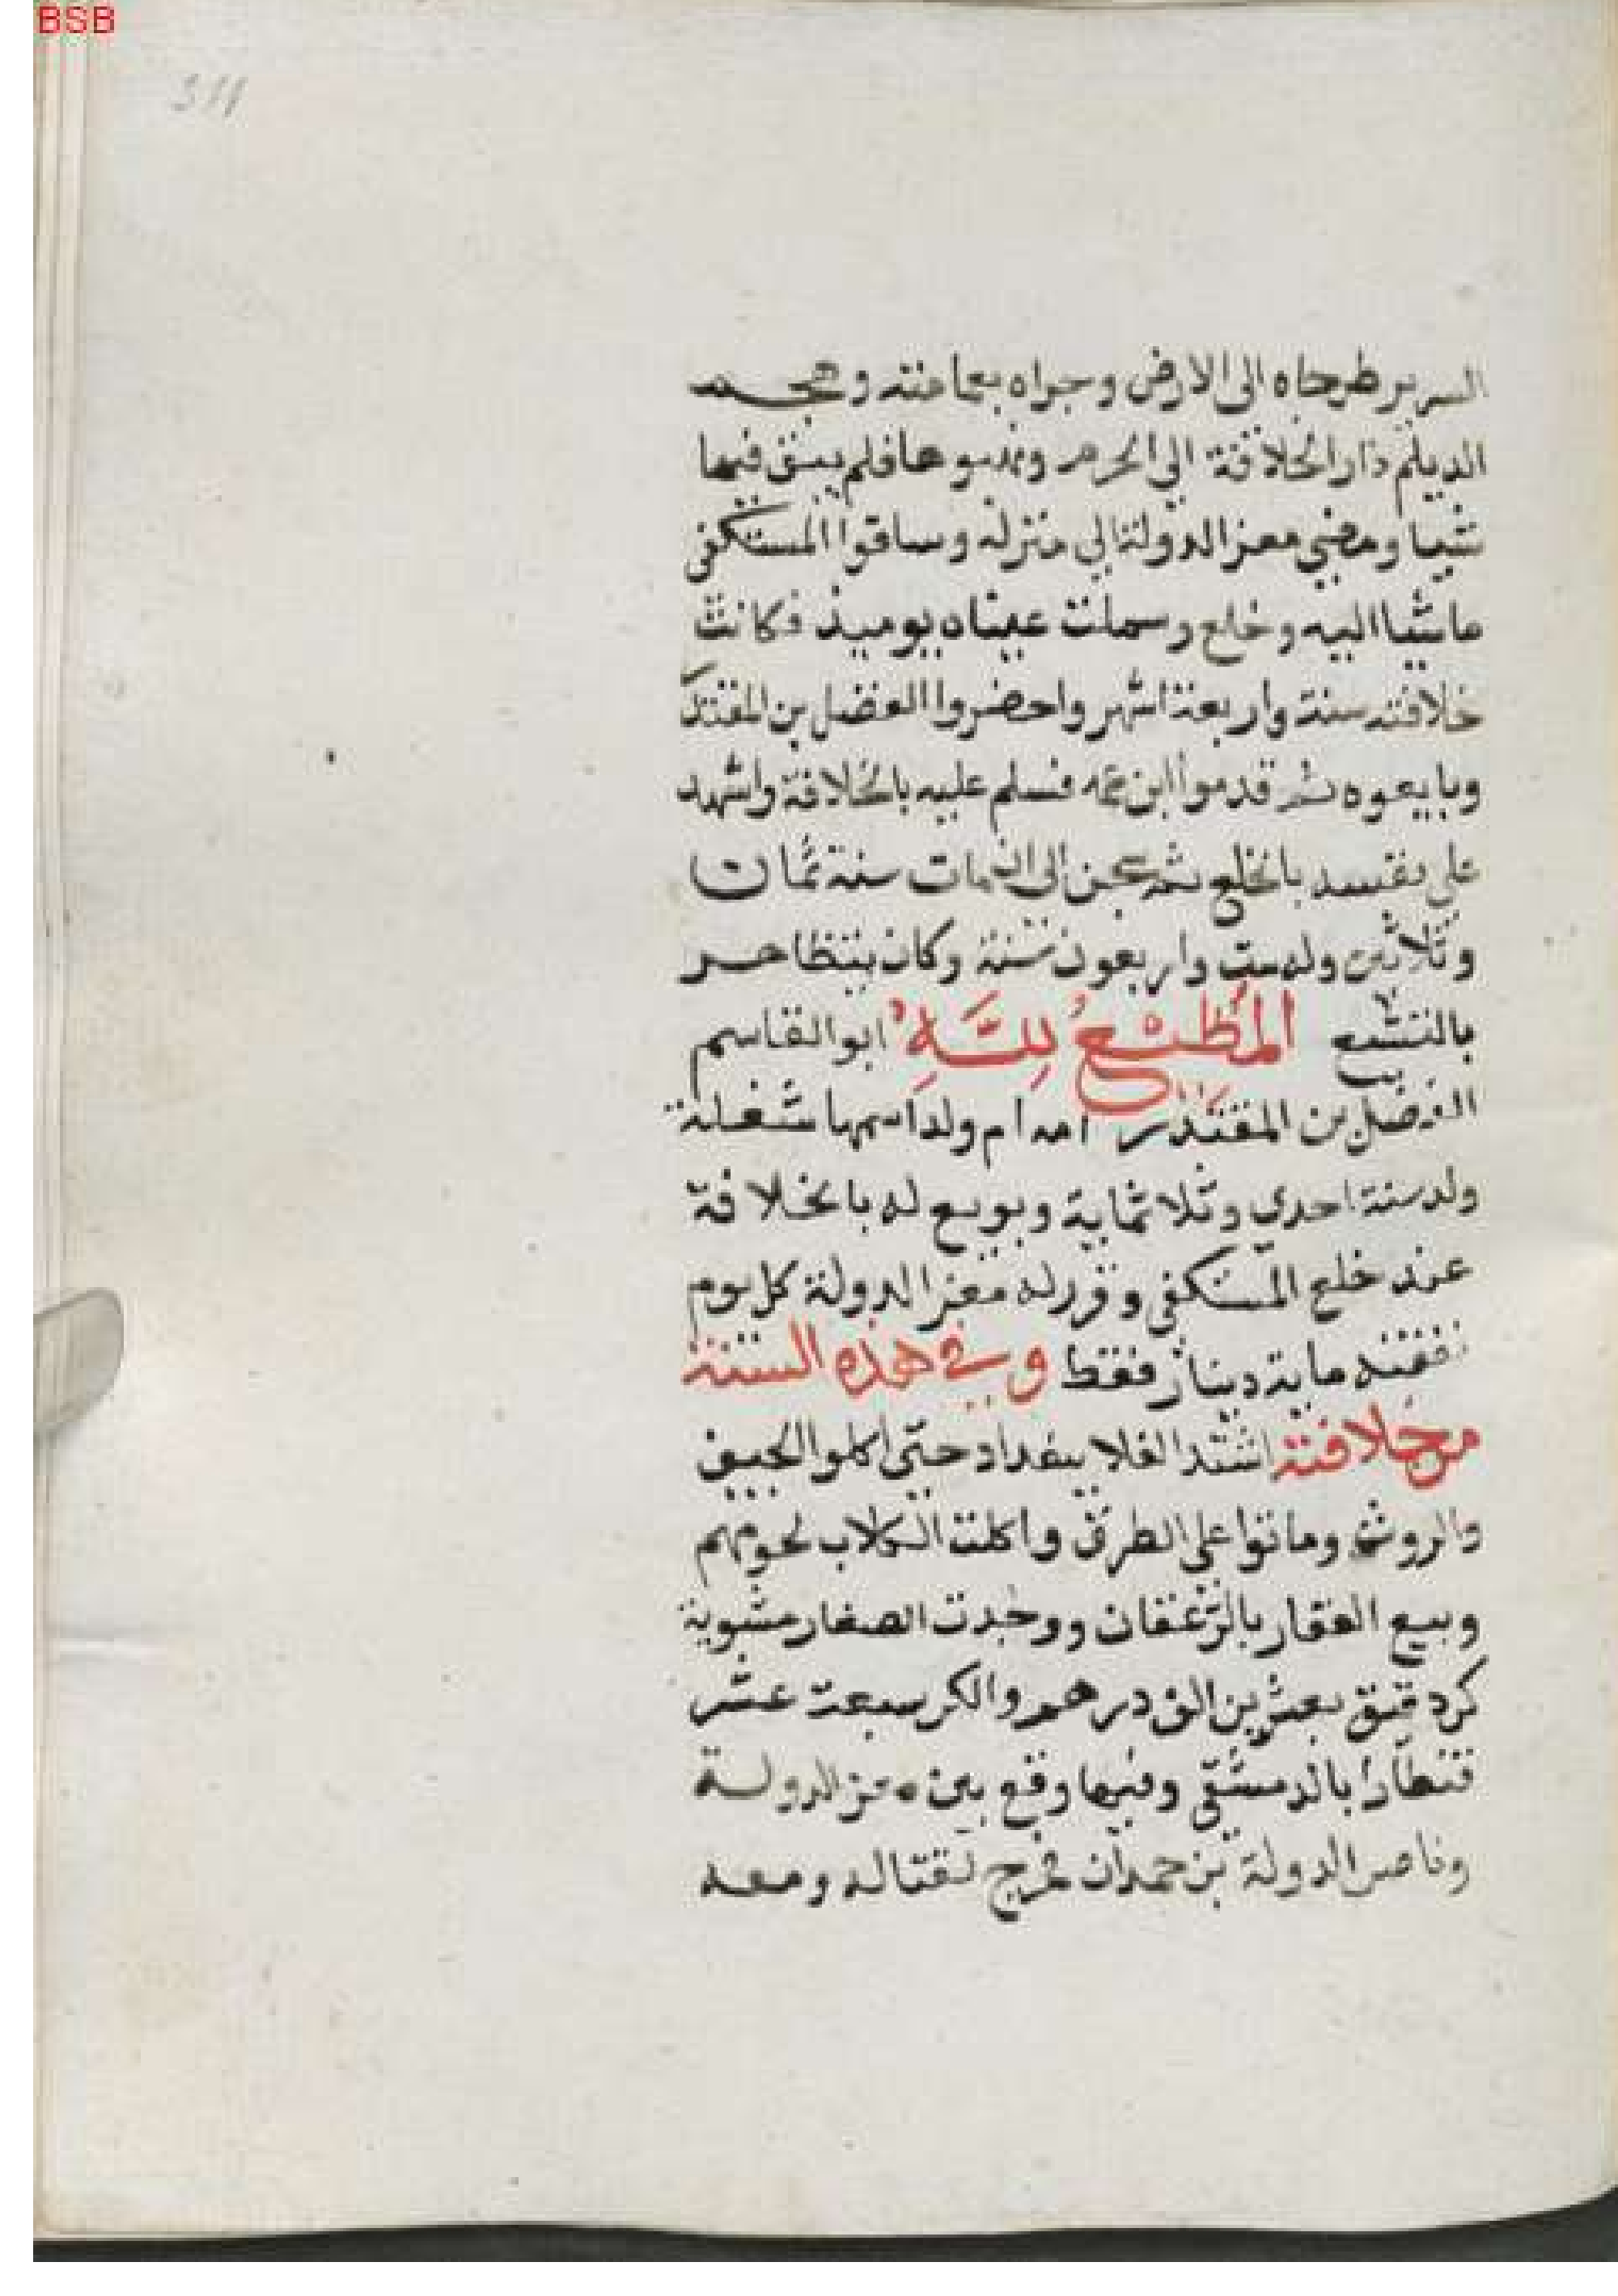 BSB
311
السرير طرحاه الى الارض وجراه بعمامته وهجم
الديلم دار الخلافة الى الحرم ونهبوها فلم يبق فيها
شيا ومضي معز الدولة الى منزله وساقوا المستكفي
ماشيا اليه وخلع وسملت عيناه يوميذ فكانت
خلافته سنة واربعة اشهر واحضروا الفضل بن المقتدر
وبايعوه ثم قدموا ابن عمه فسلم عليه بالخلافة واشهد
على نفسه بالخلع ثم سجن الى ان مات سنة ثمان
وثلاثين وله ست واربعون سنة وكان يتظاهر
بالتشيع المطيع لله ابو القاسم
الفضل بن المقتدر امه ام ولد اسمها شغلة
ولد سنة احدي وثلاثماية وبويع له بالخلافة
عند خلع المستكفي وقرر له معز الدولة كل يوم
نفقته ماية دينار فقط وفي هذه السنة
من خلافته اشتد الغلا ببغداد حتى اكلوا الجيف
والروث وماتوا على الطرق واكلت الكلاب لحومهم
وبيع العقار بالرغفان ووجدت الصغار مشوية
كر دقيق بعشرين الف درهم والكر سبعة عشر
قنطارا بالدمشقي وفيها وقع بين معز الدولة
وناصر الدولة بن حمدان فخرج لقتاله ومعه